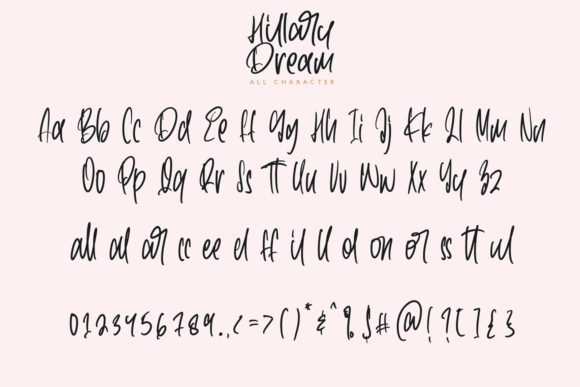 Hillary
Dream
ALL CHARACTER
Aa Bb Cc Dd Ee Ff Gg Hh Ii Jj Kk Ll Mm Nn
Oo Pp Qq Rr Ss Tt Uu Vv Ww Xx Yy Zz
all al ar cc ee el ff il ll ol on or ss tt ul
0123456789.,<=>()*&^%$#@!?[]{}